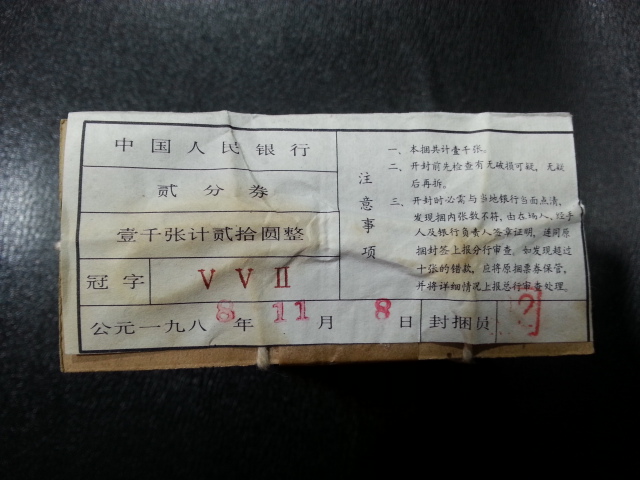 中国人民银行
贰分券
壹千张计贰拾圆整
冠字 V V II
公元一九八8年11月8日 封捆员
注意事项
一、本捆共计壹千张。
二、开封前先检查有无破损可疑，无疑
后再拆。
三、开封时必需与当地银行当面点清，
发现捆内张数不符，由在场人、经手
人及银行负责人签章证明，连同原
捆封签上报分行审查。如发现超过
十张的错款，应将原捆票券保管，
并将详细情况上报总行审查处理。